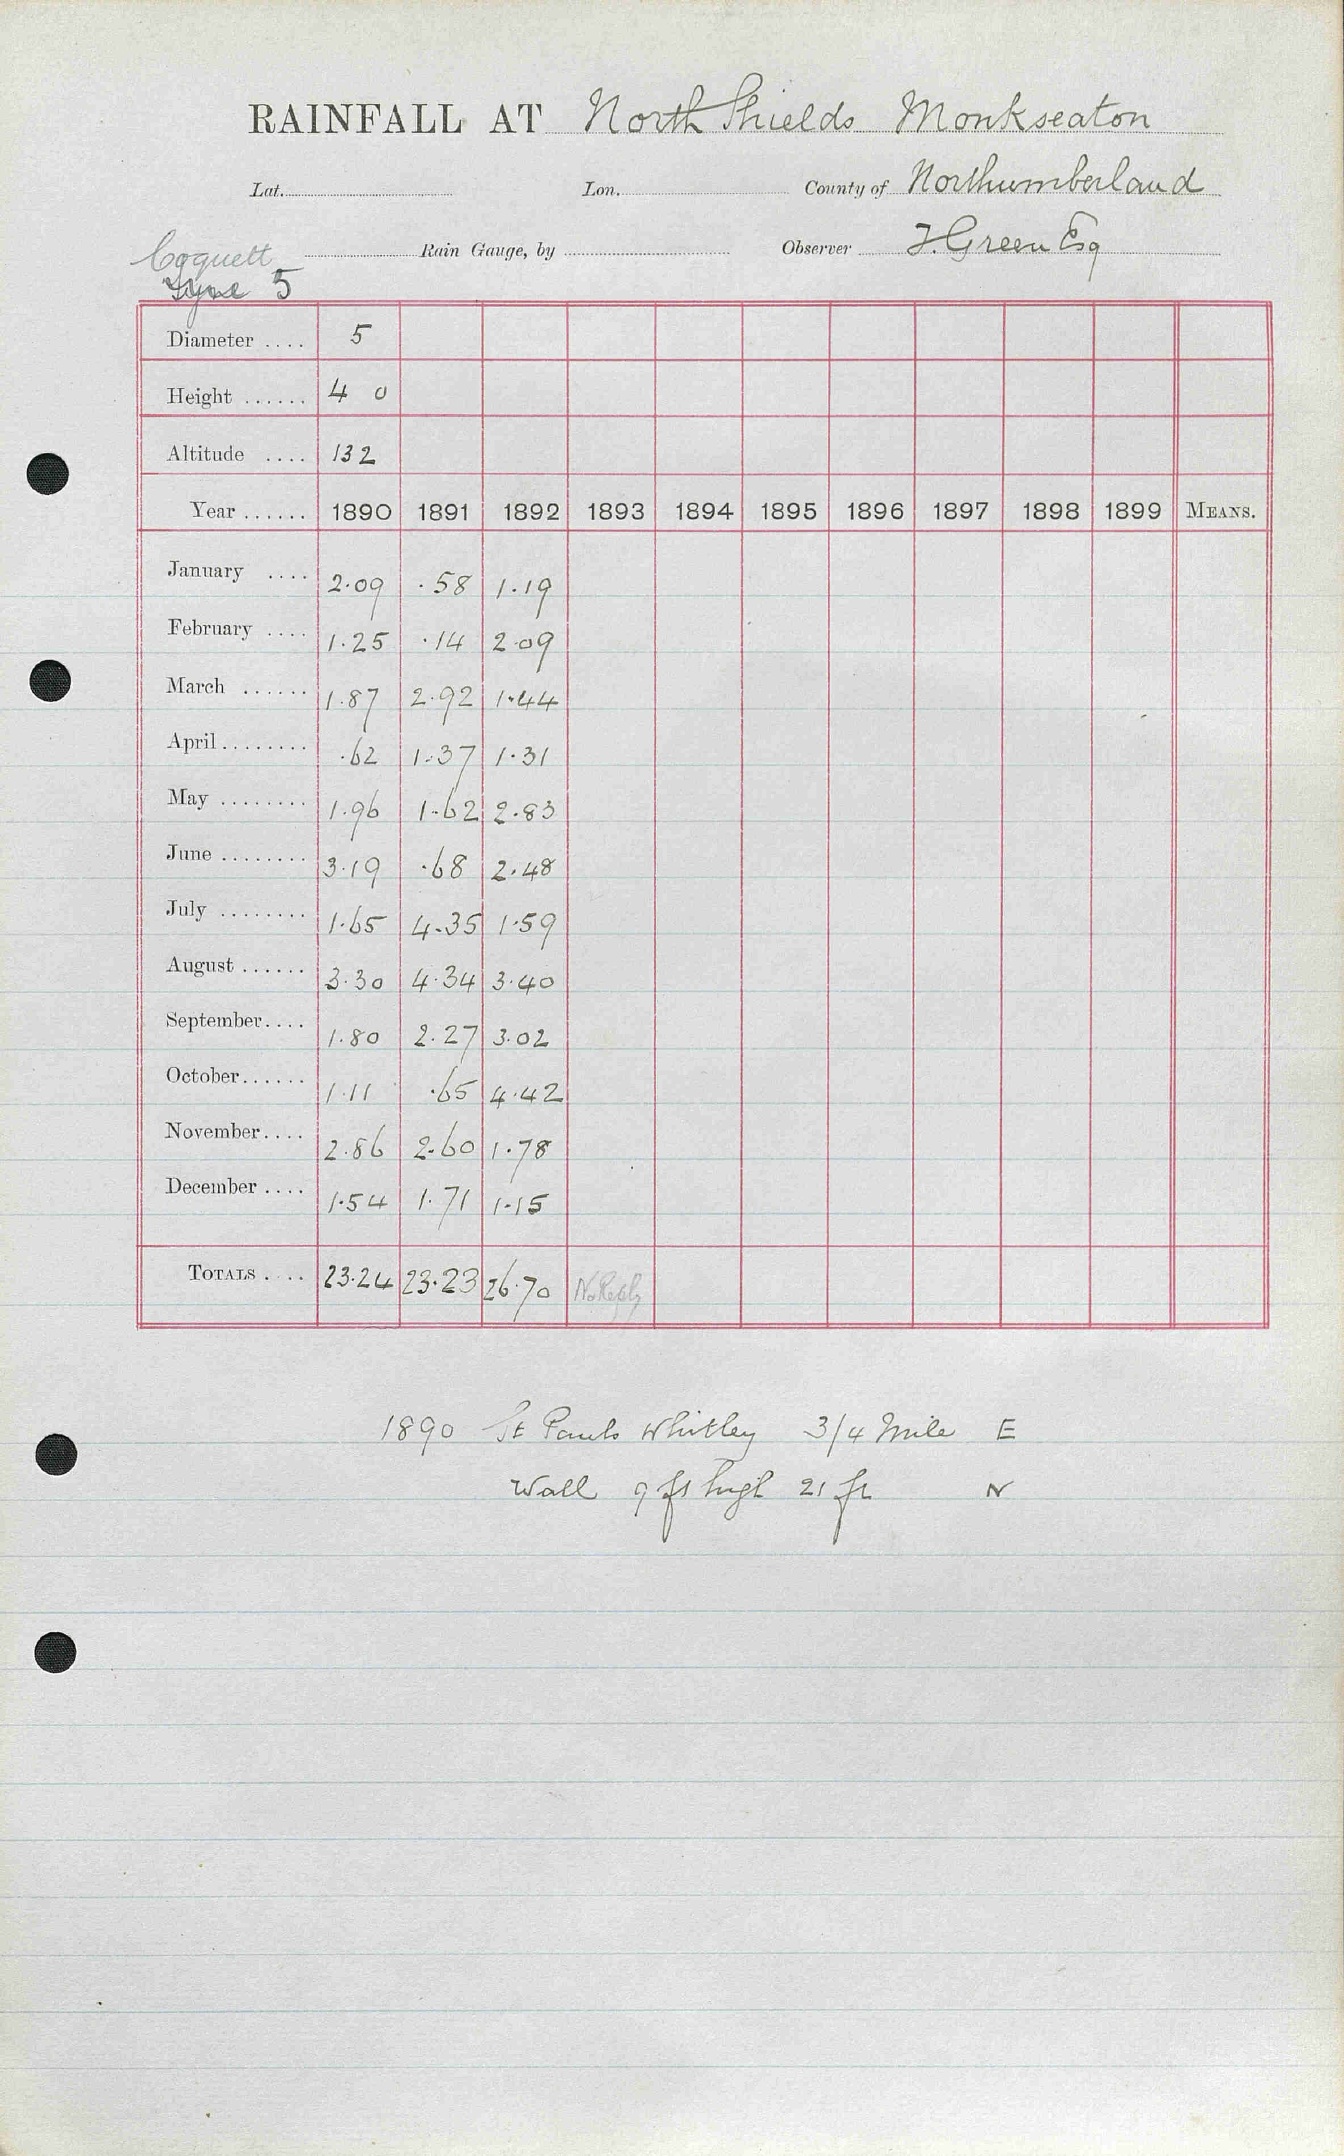 RAINFALL AT North Shields Monkseaton
Lat. Lon. County of Northumberland
Coquett Rain Gauge, by Observer J. Green Esq
Tyne 5
Diameter .... 5
Height ...... 4 0
Altitude .... 132
Year ...... 1890 1891 1892 1893 1894 1895 1896 1897 1898 1899 MEANS.
January .... 2.09 .58 1.19
February .... 1.25 .14 2.09
March ...... 1.87 2.92 1.44
April ........ .62 1.37 1.31
May ........ 1.96 1.62 2.83
June ........ 3.19 .68 2.48
July ........ 1.65 4.35 1.59
August ...... 3.30 4.34 3.40
September.... 1.80 2.27 3.02
October...... 1.11 .65 4.42
November.... 2.86 2.60 1.78
December .... 1.54 1.71 1.15
TOTALS .... 23.24 23.23 26.70 No Reply
1890 St Pauls Whitley 3/4 Mile E
Wall 9 ft high 21 ft N